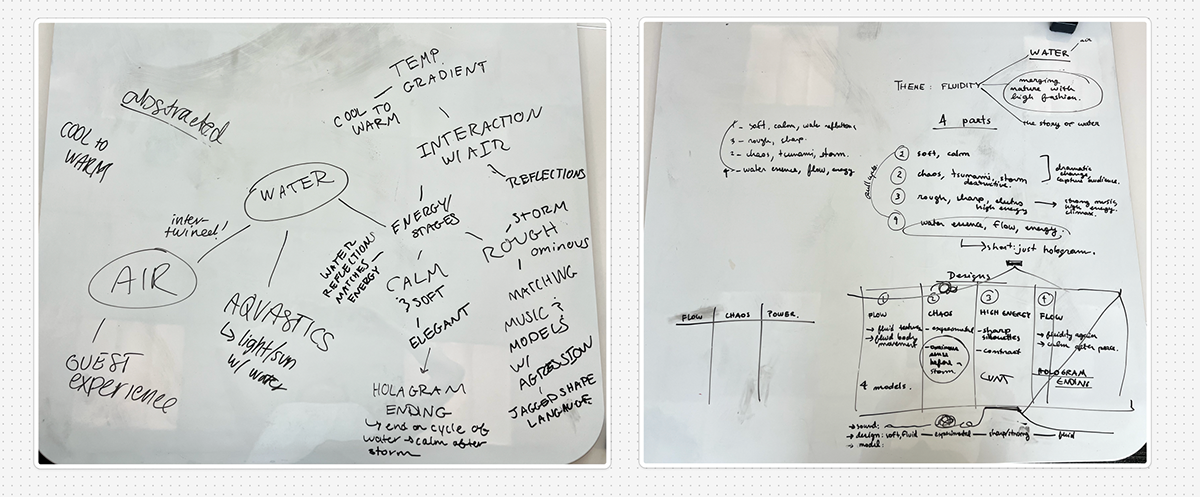 TEMP.
GRADIENT
COOL TO
WARM
abstracted
COOL TO
WARM
INTERACTION
W/AIR
REFLECTIONS
WATER
inter-
twined!
AIR
GUEST
experience
AQUASTICS
↳ light/sun
w/ water
ENERGY/
STAGES
WATER
REFLECTIONS
MATCHES
ENERGY
CALM
& SOFT
ELEGANT
HOLAGRAM
ENDING
↳ end on cycle of
water → calm after
storm
STORM
ROUGH
ominous
MATCHING
MUSIC &
MODELS
W/
AGRESSION
JAGGED SHAPE
LANGAUGE.
WATER
air
THEME: FLUIDITY
merging
nature with
high fashion.
the story of water
4 parts
1 - soft, calm, water reflections
3 - rough, sharp.
2 - chaos, tsunami, storm.
4 - water essence, flow, energy
1 soft, calm
2 chaos, tsunami, storm
destructive.
dramatic
change,
capture audience.
3 rough, sharp, electro
high energy
→ strong music
high energy
climax.
4 water essence, flow, energy.
↳ short: just hologram.
Designs
1 2 3 4
FLOW CHAOS HIGH ENERGY FLOW
→ fluid texture
→ fluid body
movement
4 models.
- experimental
- ominous
sense
before
storm
- sharp
silhouettes
- contrast
CUNT
→ fluidity again
→ calm after
HOLOGRAM
ENDING
FLOW CHAOS POWER.
→ sound:
→ design: soft, fluid — experimental — sharp/strong — fluid
→ model: